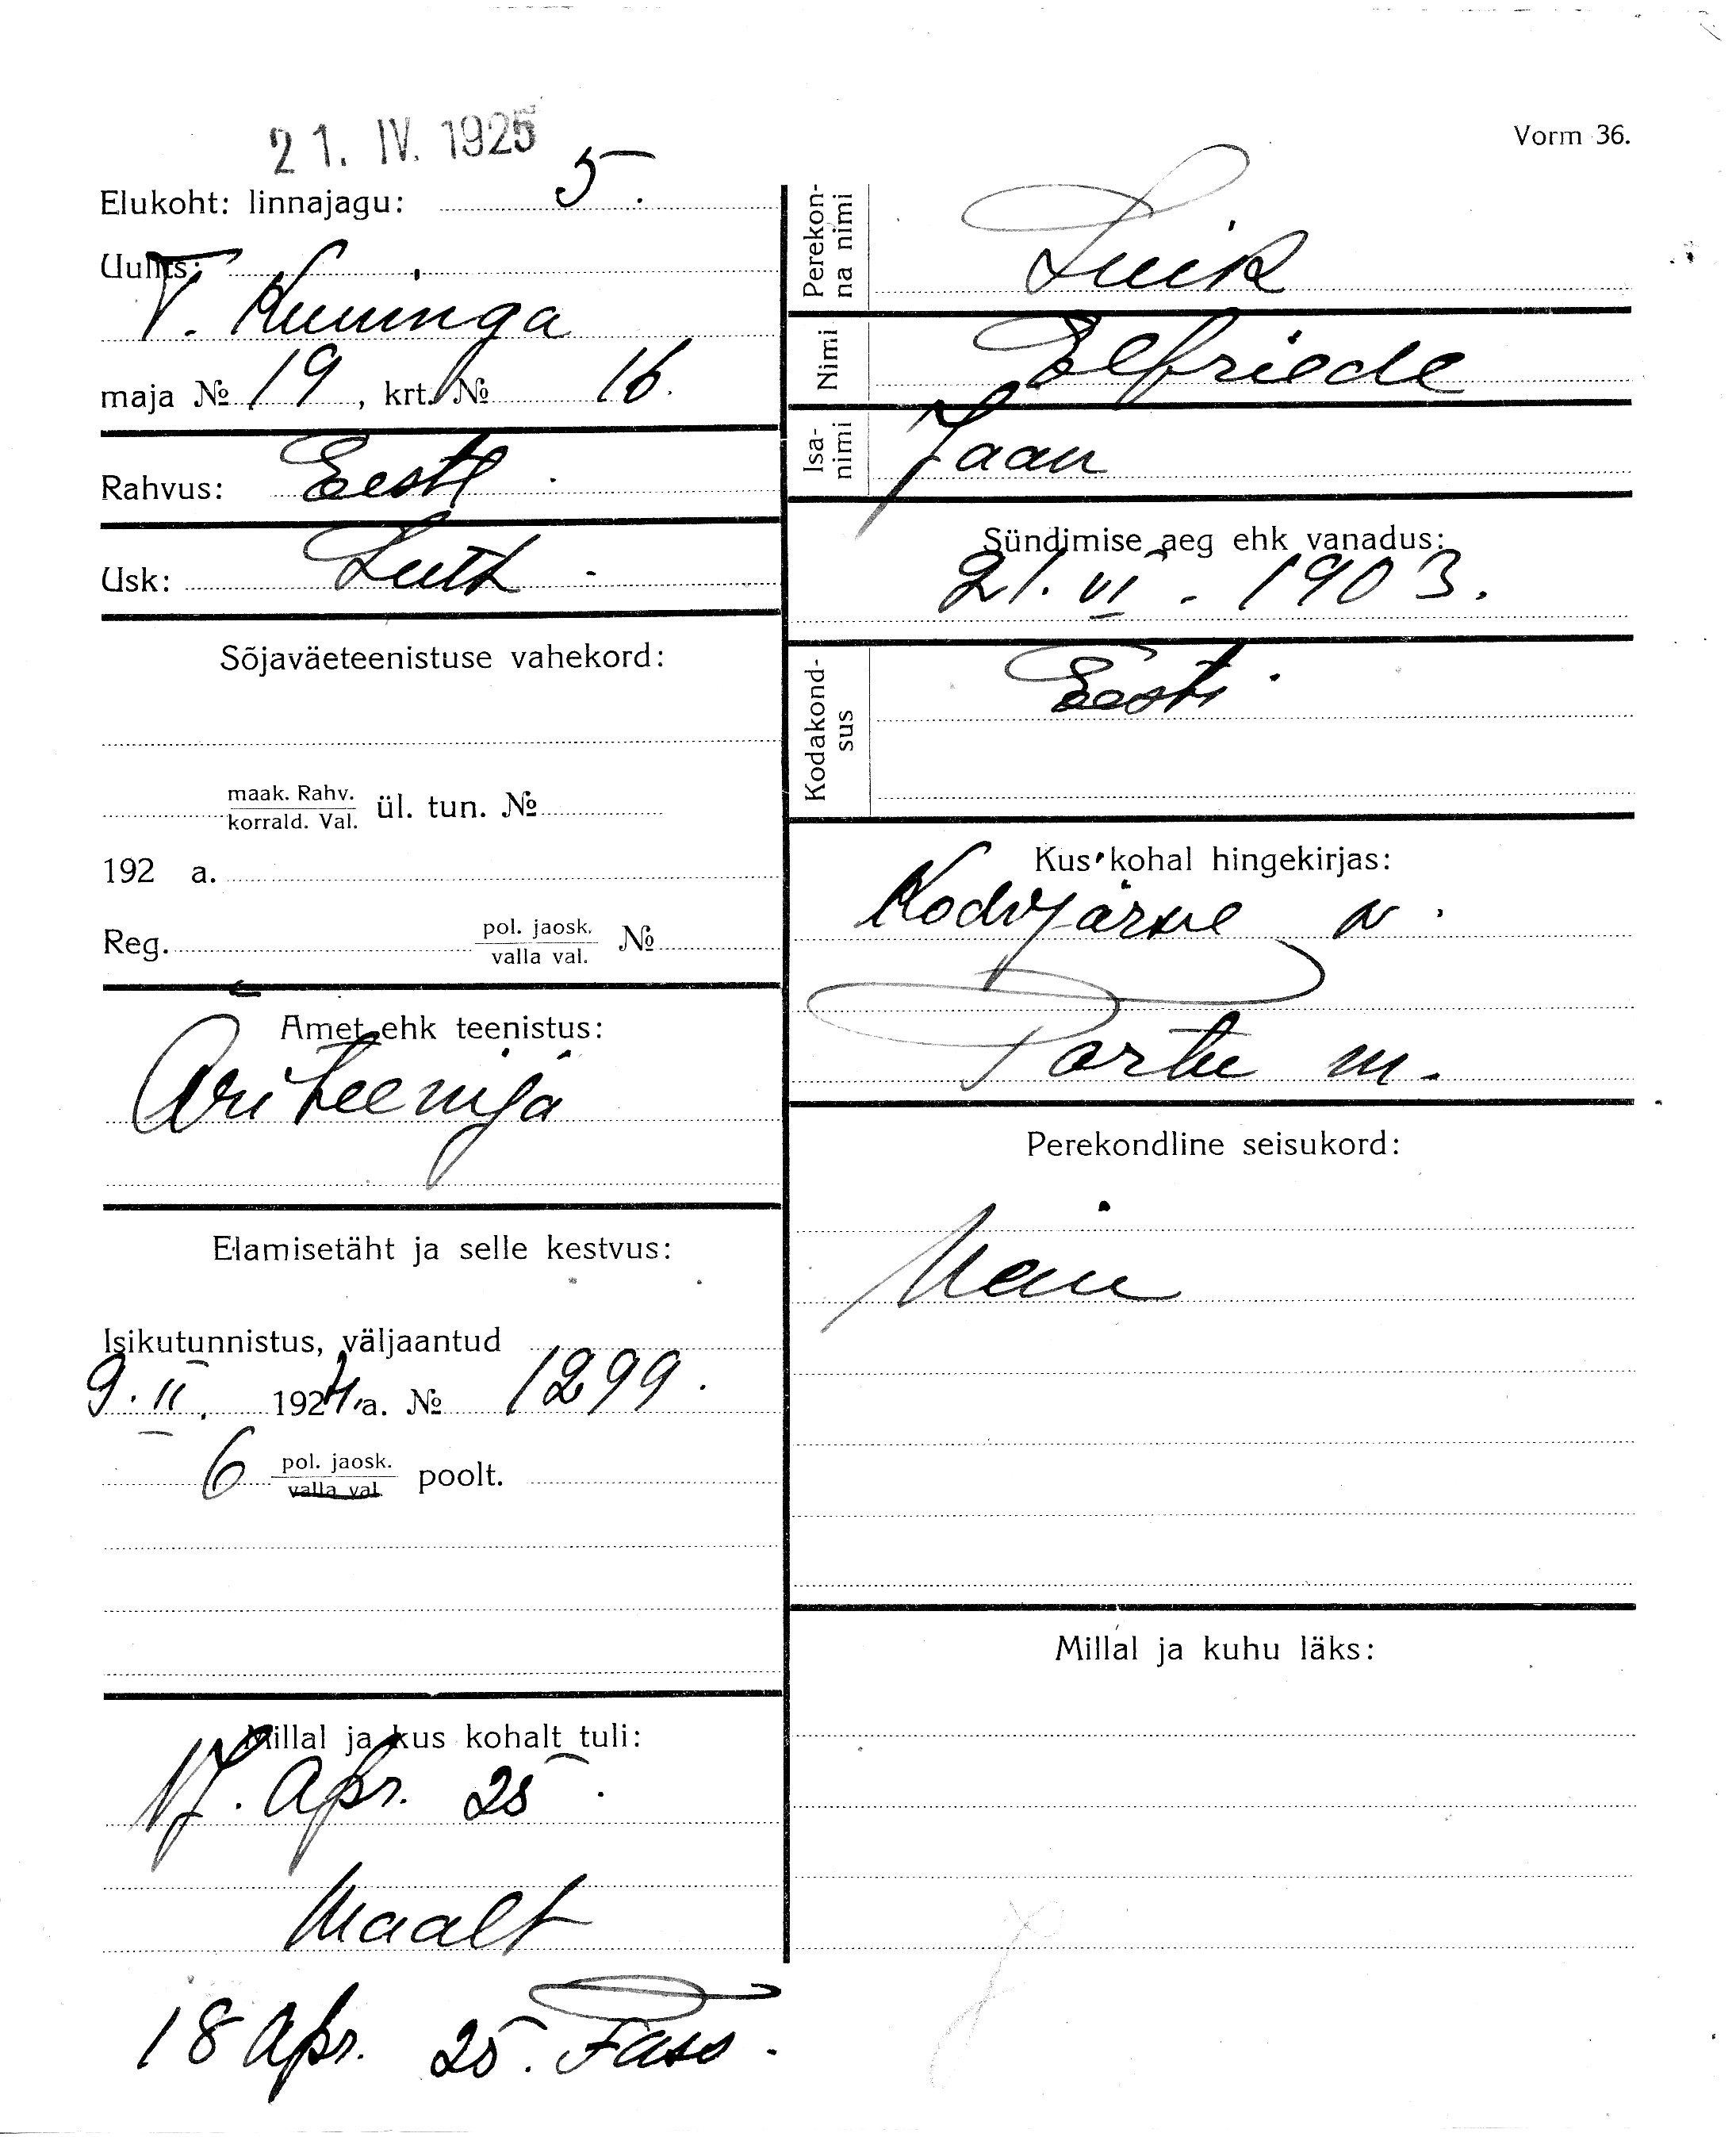 21. IV. 1925
Vorm 36.
Elukoht: linnajagu: 5.
Uulits:
V. Kuninga
maja № 19, krt. № 16.
Rahvus: Eesti
Usk: Luth.
Sõjaväeteenistuse vahekord:
maak. Rahv.
korrald. Val. ül. tun. №
192 a.
Reg. pol. jaosk. №
valla val.
Amet ehk teenistus:
Äriteenija
Elamisetäht ja selle kestvus:
Isikutunnistus, väljaantud
9. II. 1924 a. № 1299.
6 pol. jaosk. poolt.
valla val.
Millal ja kus kohalt tuli:
17. Apr. 25.
Maalt
18 Apr. 25.
Perekonna nimi
Luik
Nimi
Elfriede
Isanimi
Jaan
Sündimise aeg ehk vanadus:
21. VI. 1903.
Kodakondsus
Eesti
Kus kohal hingekirjas:
v.
m.
Perekondline seisukord:
Millal ja kuhu läks: